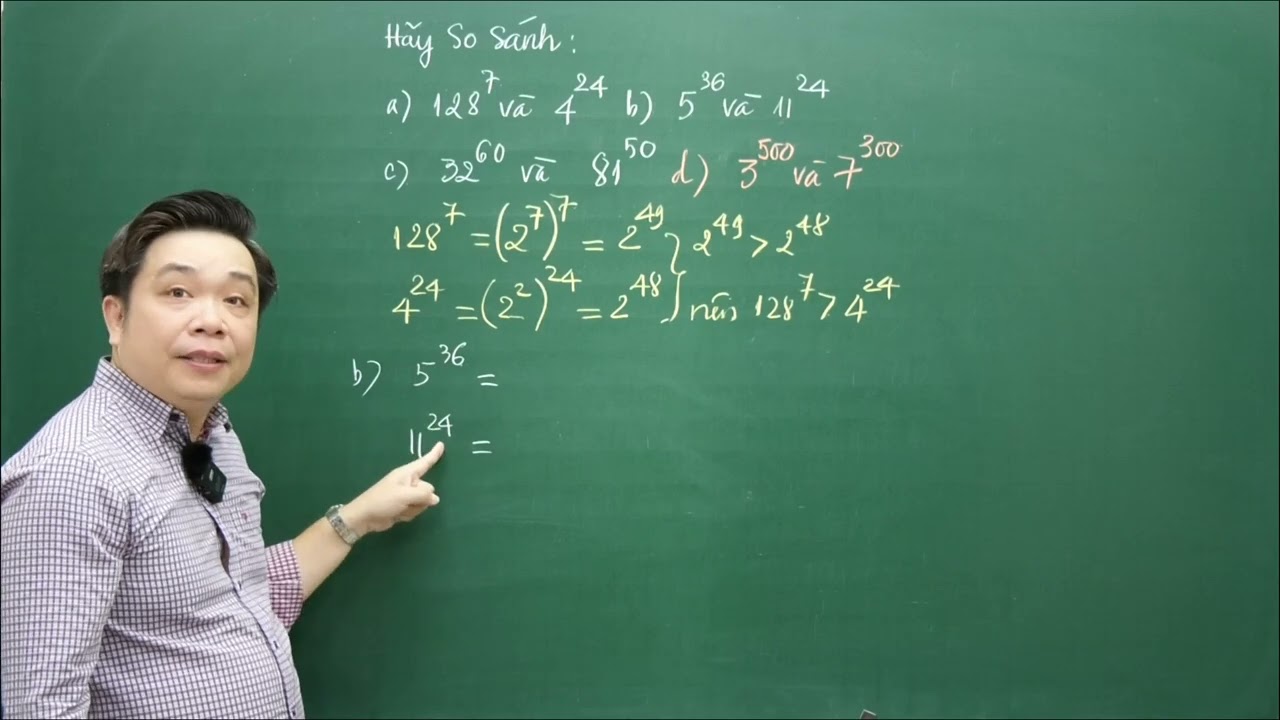 Hãy So Sánh:
a) 128⁷ và 4²⁴ b) 5³⁶ và 11²⁴
c) 32⁶⁰ và 81⁵⁰ d) 3⁵⁰⁰ và 7³⁰⁰
128⁷ = (2⁷)⁷ = 2⁴⁹ } 2⁴⁹ > 2⁴⁸
4²⁴ = (2²)²⁴ = 2⁴⁸ } nên 128⁷ > 4²⁴
b) 5³⁶ =
11²⁴ =